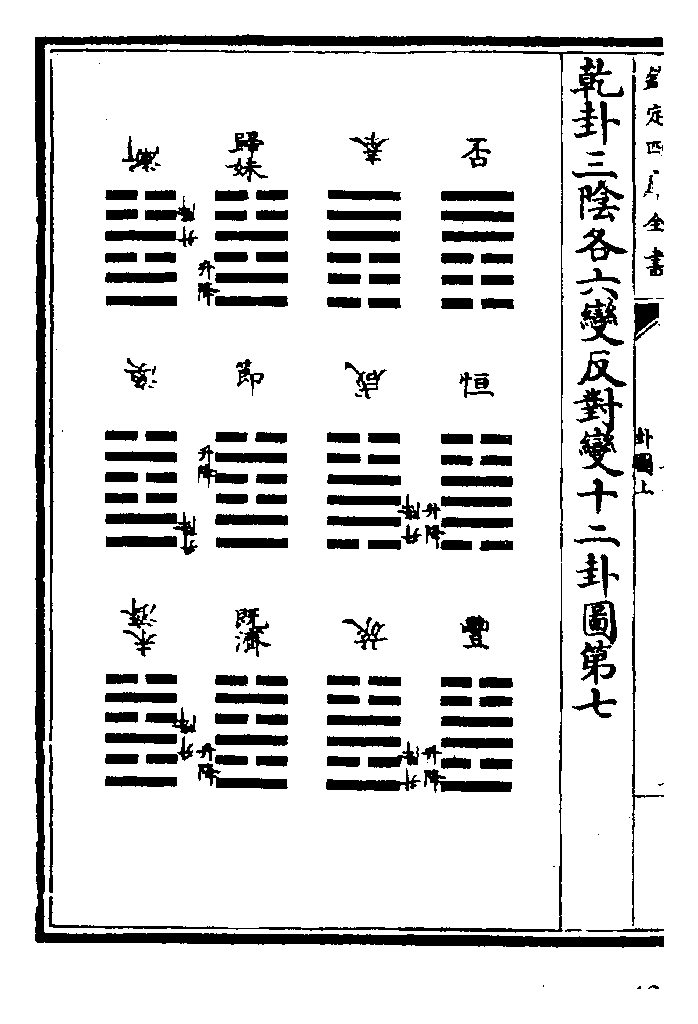 欽定四庫全書
卦圖上
乾卦三陰各六變反對變十二卦圖第七
否
泰
歸妹
漸
升降
升降
恒
咸
節
渙
升降
升降
升降
升降
豐
旅
既濟
未濟
升降
升降
升降
升降